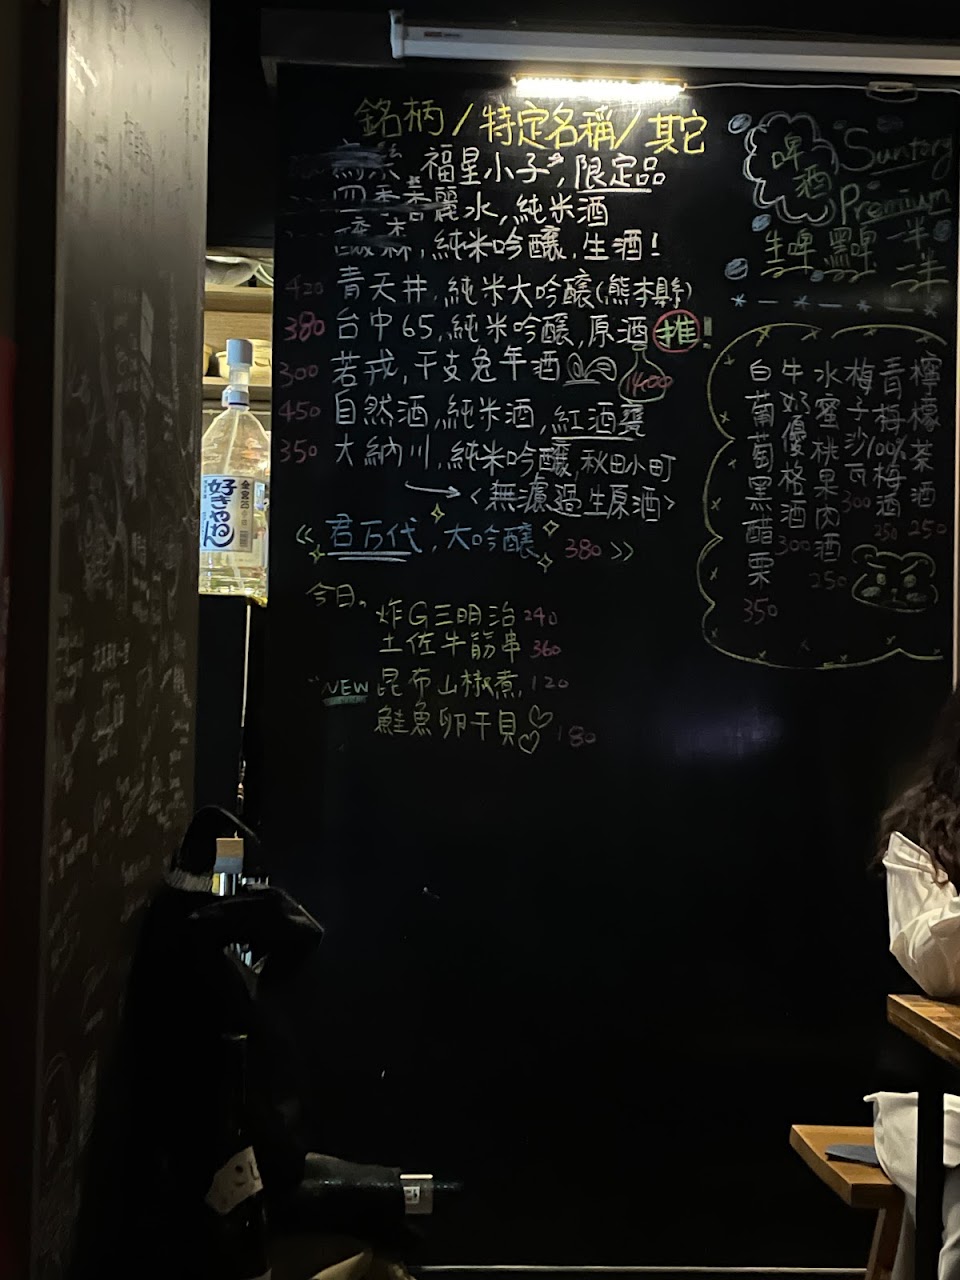 銘柄/特定名稱/其它
福星小子, 限定品
麗水, 純米酒
純米吟釀, 生酒!
420 青天井, 純米大吟釀(熊本縣)
380 台中65, 純米吟釀, 原酒 推!
1400
300 若戎, 干支兔年酒
450 自然酒, 純米酒, 紅酒甕
350 大納川, 純米吟釀, 秋田小町
<無濾過生原酒>
《君万代, 大吟釀 380》
今日。
炸G三明治 240
土佐牛筋串 360
NEW 昆布山椒煮, 120
鮭魚卵干貝 180
啤酒
Suntory
Premium
生啤 黑啤 一半一半
檸檬茶酒 250
青梅100%梅酒 250
梅子沙瓦 300
水蜜桃果肉酒 250
牛奶優格酒 300
白葡萄黑醋栗 350
金宮25
好きやねん